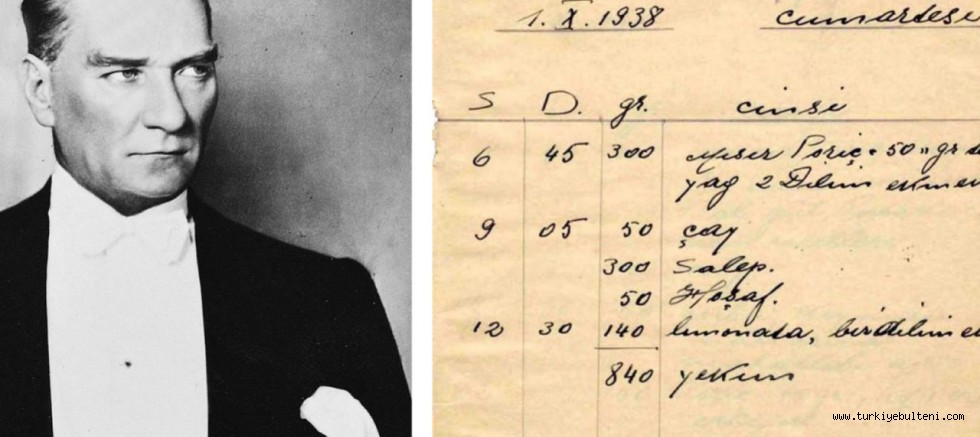 1. X. 1938 cumartesi
S D. gr. cinsi
6 45 300 Mısır Poriç. 50 " gr
yag 2 Dilim ekme
9 05 50 çay
300 Salep.
50 Hoşaf.
12 30 140 limonata, bir dilim e
840 yekun
www.turkiyebulteni.com